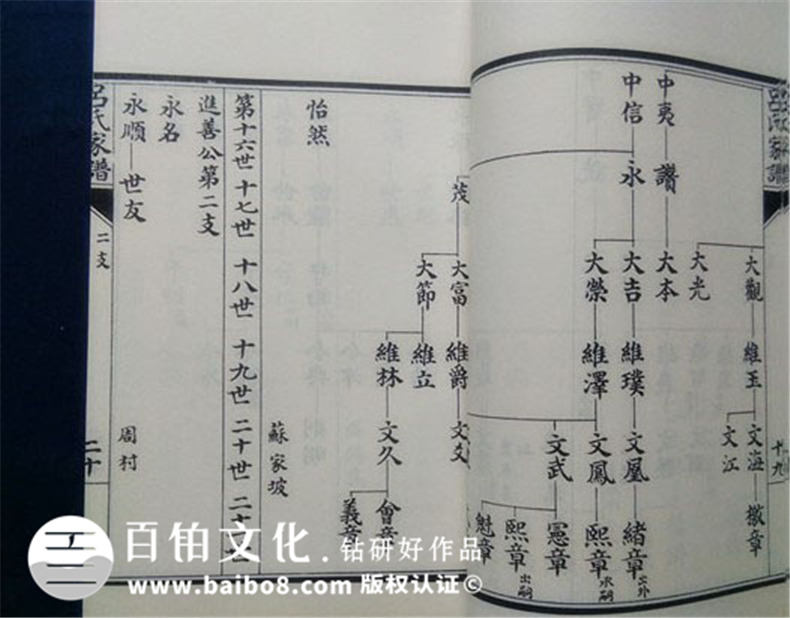 呂氏家譜
十九
大觀
維玉
文海
徽章
文江
大光
中夷
讚
大本
中信
永
大吉
維璞
文凰
緒章 出外
大榮
維澤
文鳳
熙章 承嗣
文武
憲章
熙章 出嗣
魁章
茂
大富
維爵
大節
維立
維林
文久
會章
義章
怡然
蘇家坡
第十六世 十七世 十八世 十九世 二十世 二十
進善公第二支
永名
永順 世友
周村
呂氏家譜
二支
二十
百铂文化.钻研好作品
www.baibo8.com 版权认证©